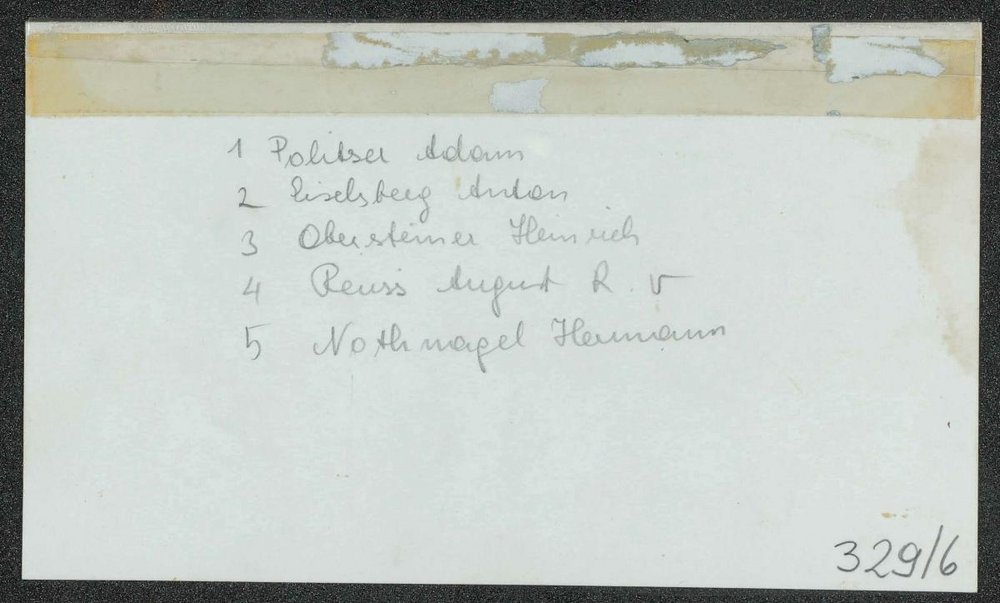 1 Politzer Adam
2 Eiselsberg Anton
3 Obersteiner Heinrich
4 Reuss August R. v
5 Nothnagel Hermann
329/6